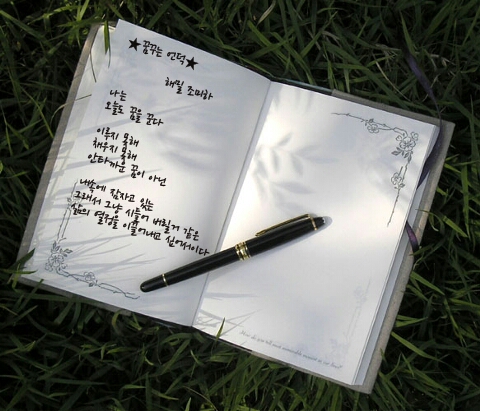 ★꿈꾸는 언덕★
해밀 조미하
나는
오늘도 꿈을 꾼다
이루지 못해
채우지 못해
안타까운 꿈이 아닌
내속에 잠자고 있는
그래서 그냥 시들어 버릴거 같은
삶의 열정을 이끌어내고 싶어서이다